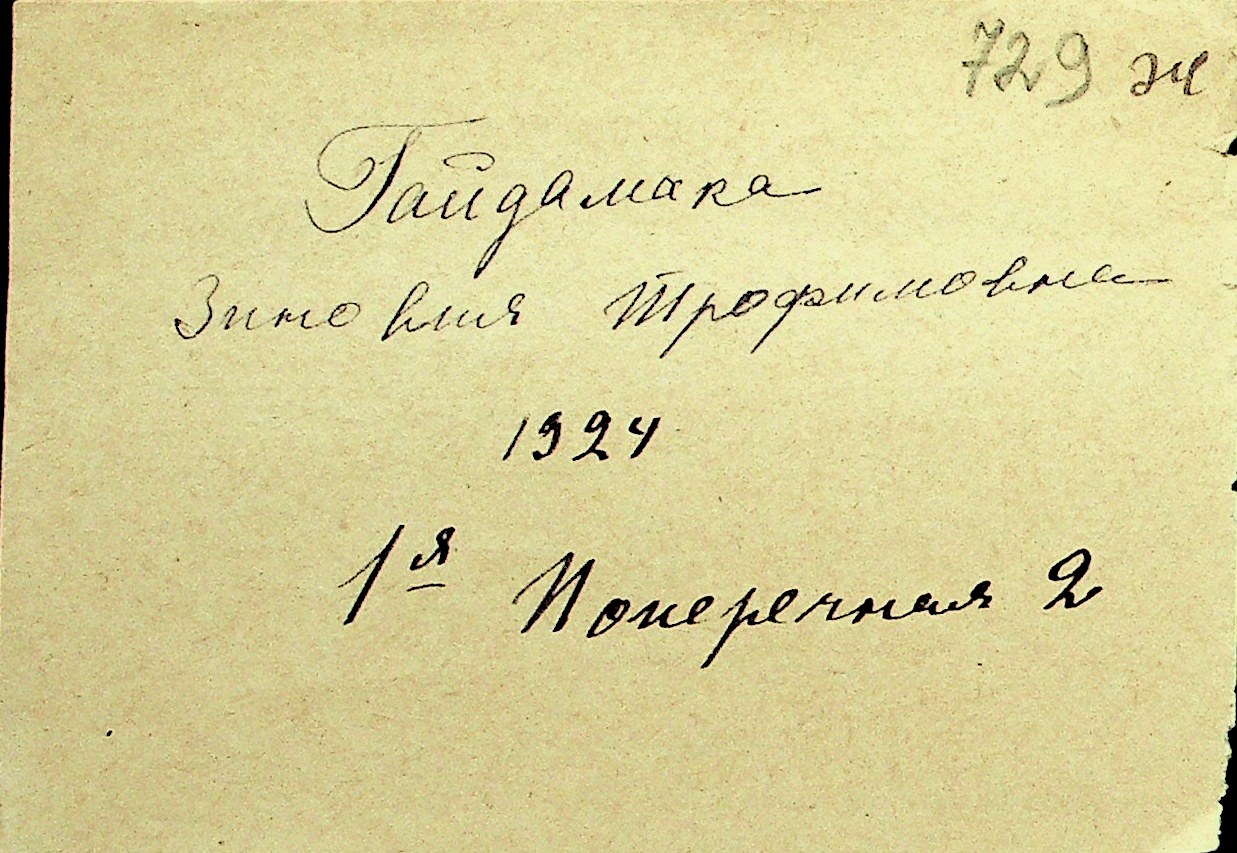 729 ж
Гайдамака
Зиновия Трофимовна
1924
1я Поперечная 2